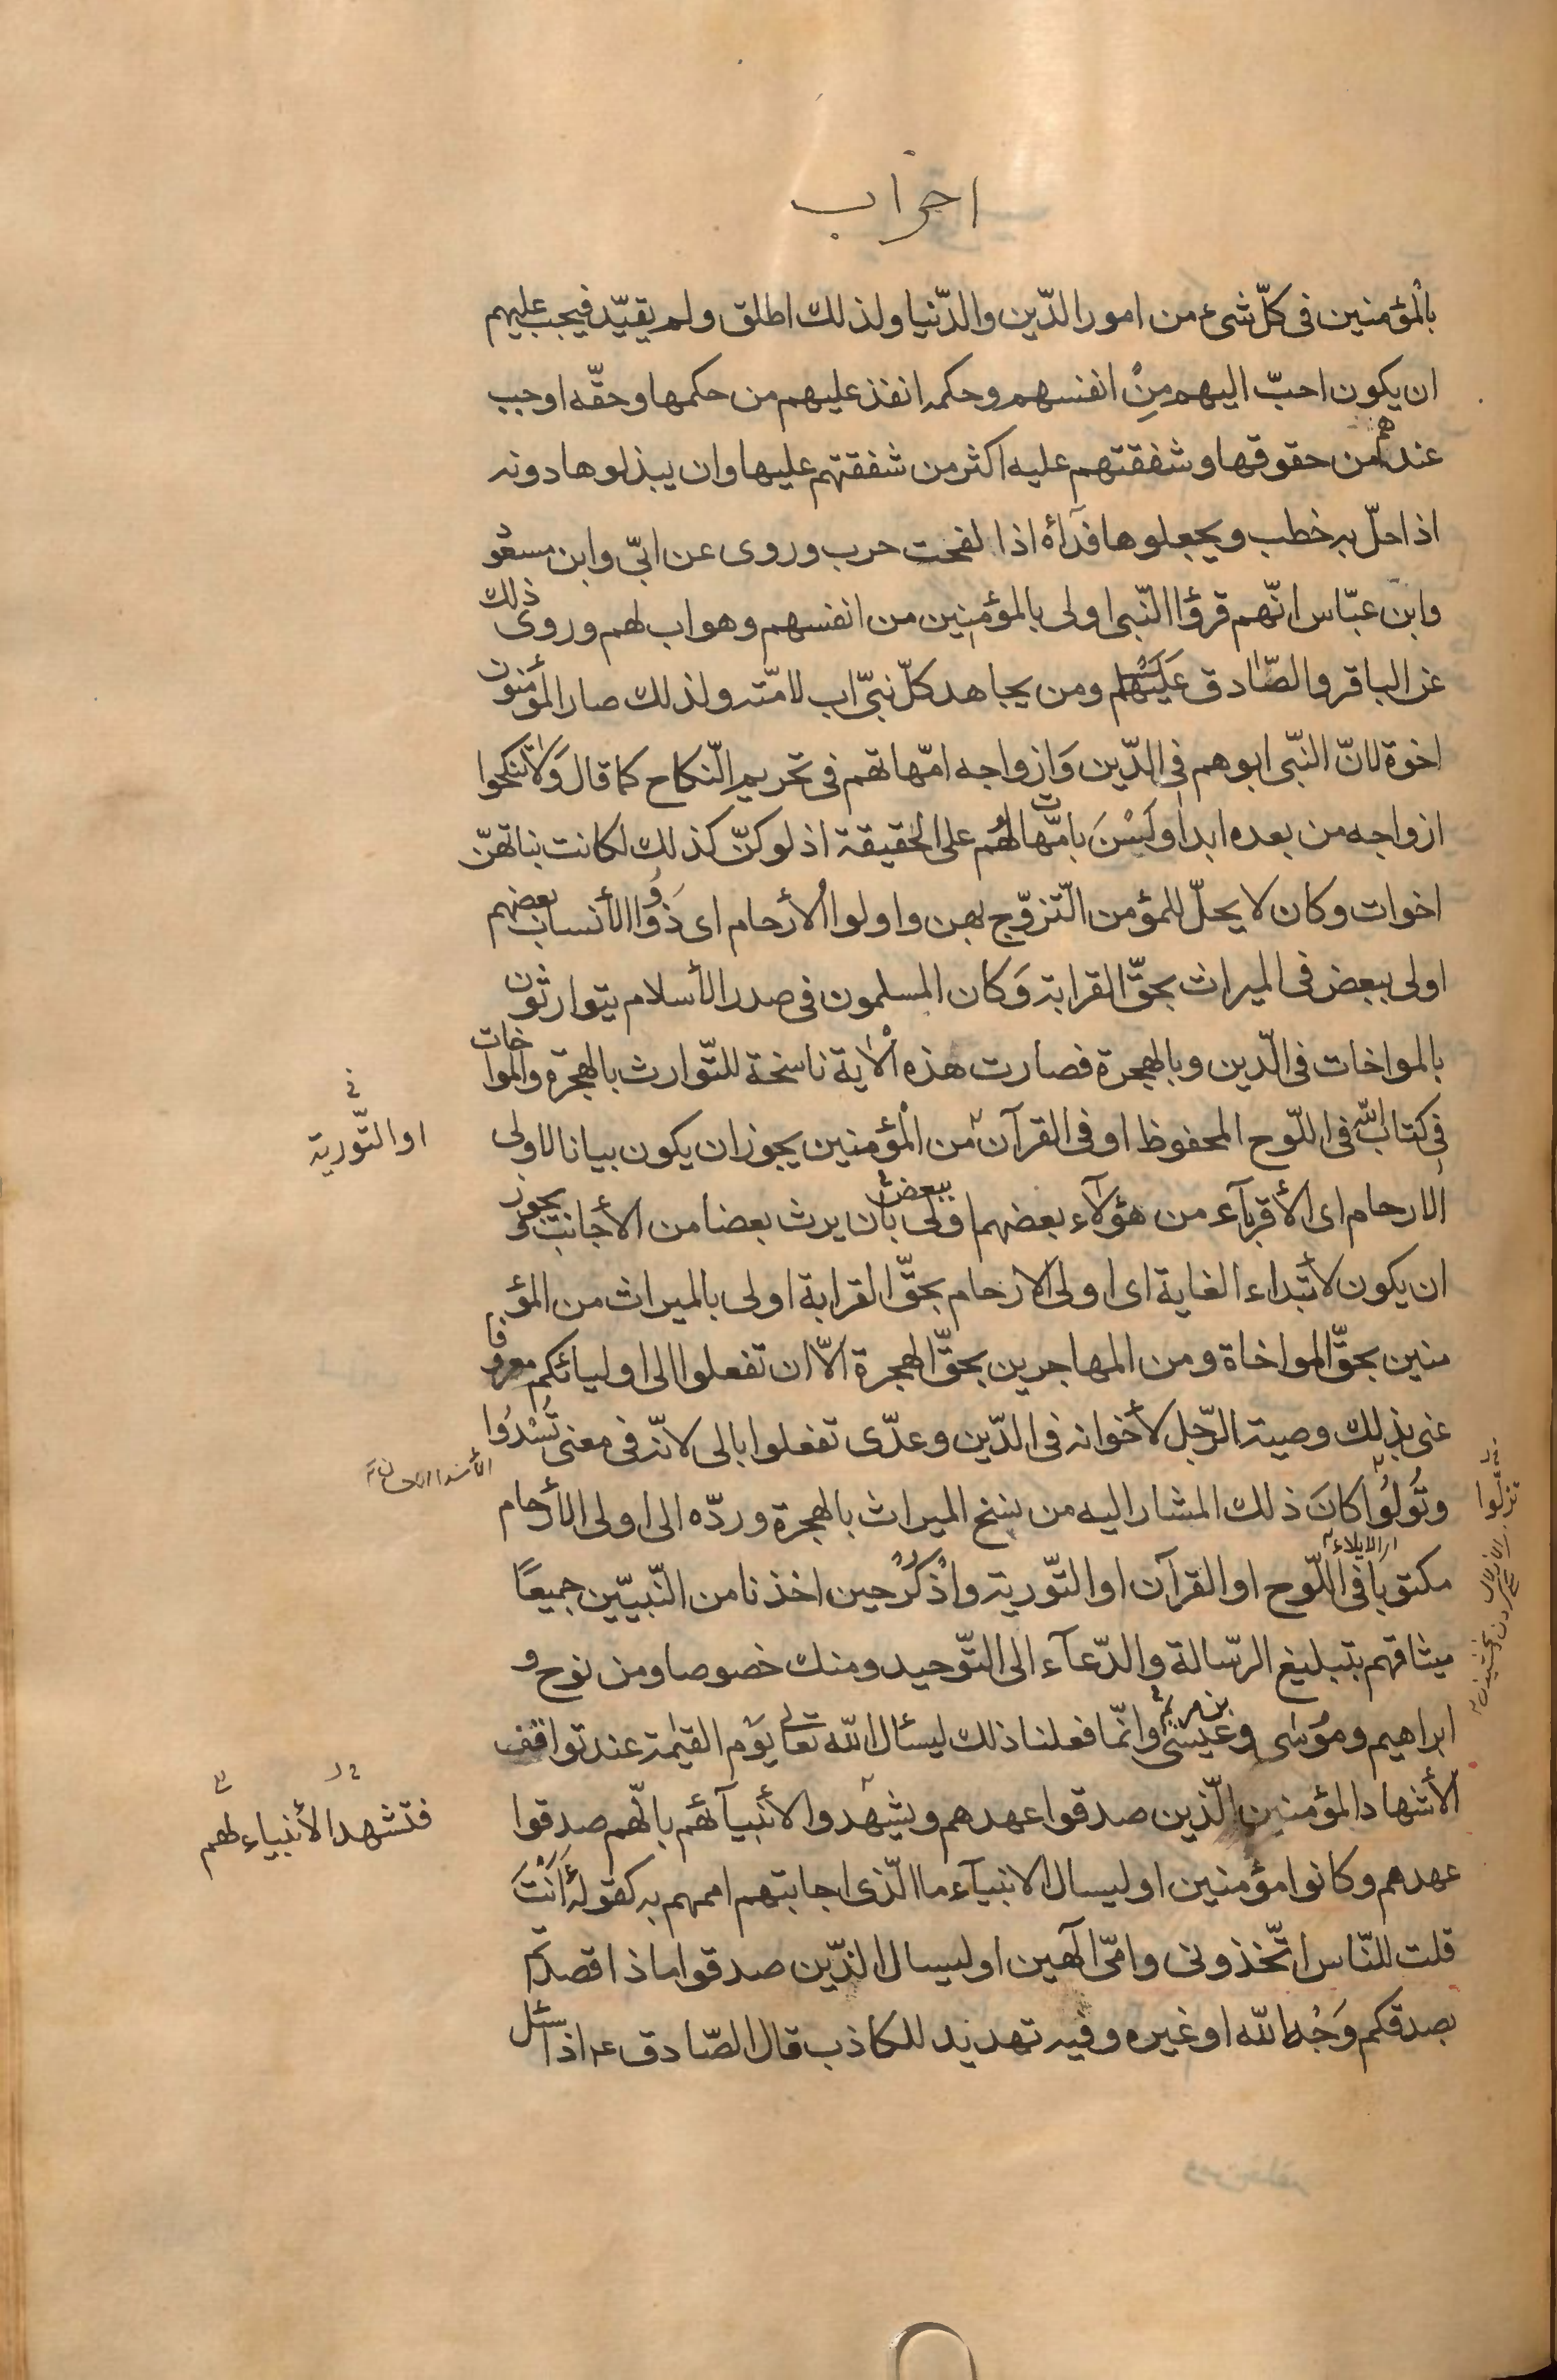 احزاب
بالمؤمنين فى كلّ شىء من امور الدّين والدّنيا ولذلك اطلق ولم يقيّد فيجب عليهم
ان يكون احبّ اليهم مِنْ انفسهم وحكمه انفذ عليهم من حكمها وحقّه اوجب
عندهم من حقوقها وشفقتهم عليه اكثر من شفقتهم عليها وان يبذلوها دونه
اذا حلّ به خطب ويجعلوها فدآءه اذا لفحت حرب وروى عن ابىّ وابن مسعود
وابن عبّاس انّهم قرؤا النّبى اولى بالمؤمنين من انفسهم وهو اب لهم وروى ذلك
عن الباقر والصّادق عليهما ومن يجاهد كلّ نبىّ اب لامّته ولذلك صار المؤمنون
اخوة لانّ النّبى ابوهم فى الدّين وَازواجه امّهاتهم فى تحريم النّكاح كما قال وَلا تنكحوا
ازواجه من بعده ابدا ولَسْنَ بامّهات لهُم على الحقيقة اذ لو كنّ كذلك لكانت بناتهنّ
اخوات وكان لا يحلّ للمؤمن التّزوّج بهن واولوا الأرحام اى ذَوُوا الأنساب بعضهم
اولى ببعض فى الميراث بحقّ القرابة وَكان المسلمون فى صدر الأسلام يتوارثون
بالمواخات فى الدّين وبالهجرة فصارت هذه الْاية ناسخة للتّوارث بالهجرة والمواخات
فى كتاب اللّه فى اللّوح المحفوظ او فى القرآن من الْمؤمنين يجوز ان يكون بيانا لاولى
او التّورية
الارحام اى الأقربآء من هؤلآء بعضهم اولى ببعض بأن يرث بعضا من الأجانب ويجوز
ان يكون لأبتداء الغاية اى اولى الارحام بحقّ القرابة اولى بالميراث من المؤ
منين بحقّ المواخاة ومن المهاجرين بحقّ الهجرة الّا ان تفعلوا الى اوليائكم معروفا
عنى بذلك وصية الرّجل لأخوانه فى الدّين وعدّى تفعلوا بالى لانّه فى معنى تُسْدُوا
وتُولُوا كانَ ذلك المشار اليه من نسخ الميراث بالهجرة وردّه الى اولى الأرحام
تزلوا
مكتوبا فى اللّوح او القرآن او التّورية واذْكُرْ حين اخذنا من النّبيّين جميعًا
ميثاقهم بتبليغ الرّسالة والدّعآء الى التّوحيد ومنك خصوصا ومن نوح و
ابراهيم ومُوسٰى وعيسٰى بن مريم وانّما فعلنا ذلك ليسأل اللّه تعالى يوْم القيٰمة عند تواقف
الأشهاد المؤمنين الّذين صدقوا عهدهم ويشهدوا الأنبيآء لهُم بانّهم صدقوا
فتشهد الأنبياء لهم
عهدهم وكانوا مؤمنين او ليسال الانبيآء ما الّذى اجابتهم اممهم به كقوله أَأَنْتَ
قلت للنّاس اتّخذونى وامّى آلهين او ليسال الّذين صدقوا ماذا قصدتم
بصدقكم وَجْه اللّه او غيره وفيه تهديد للكاذب قال الصّادق ع اذا سئل